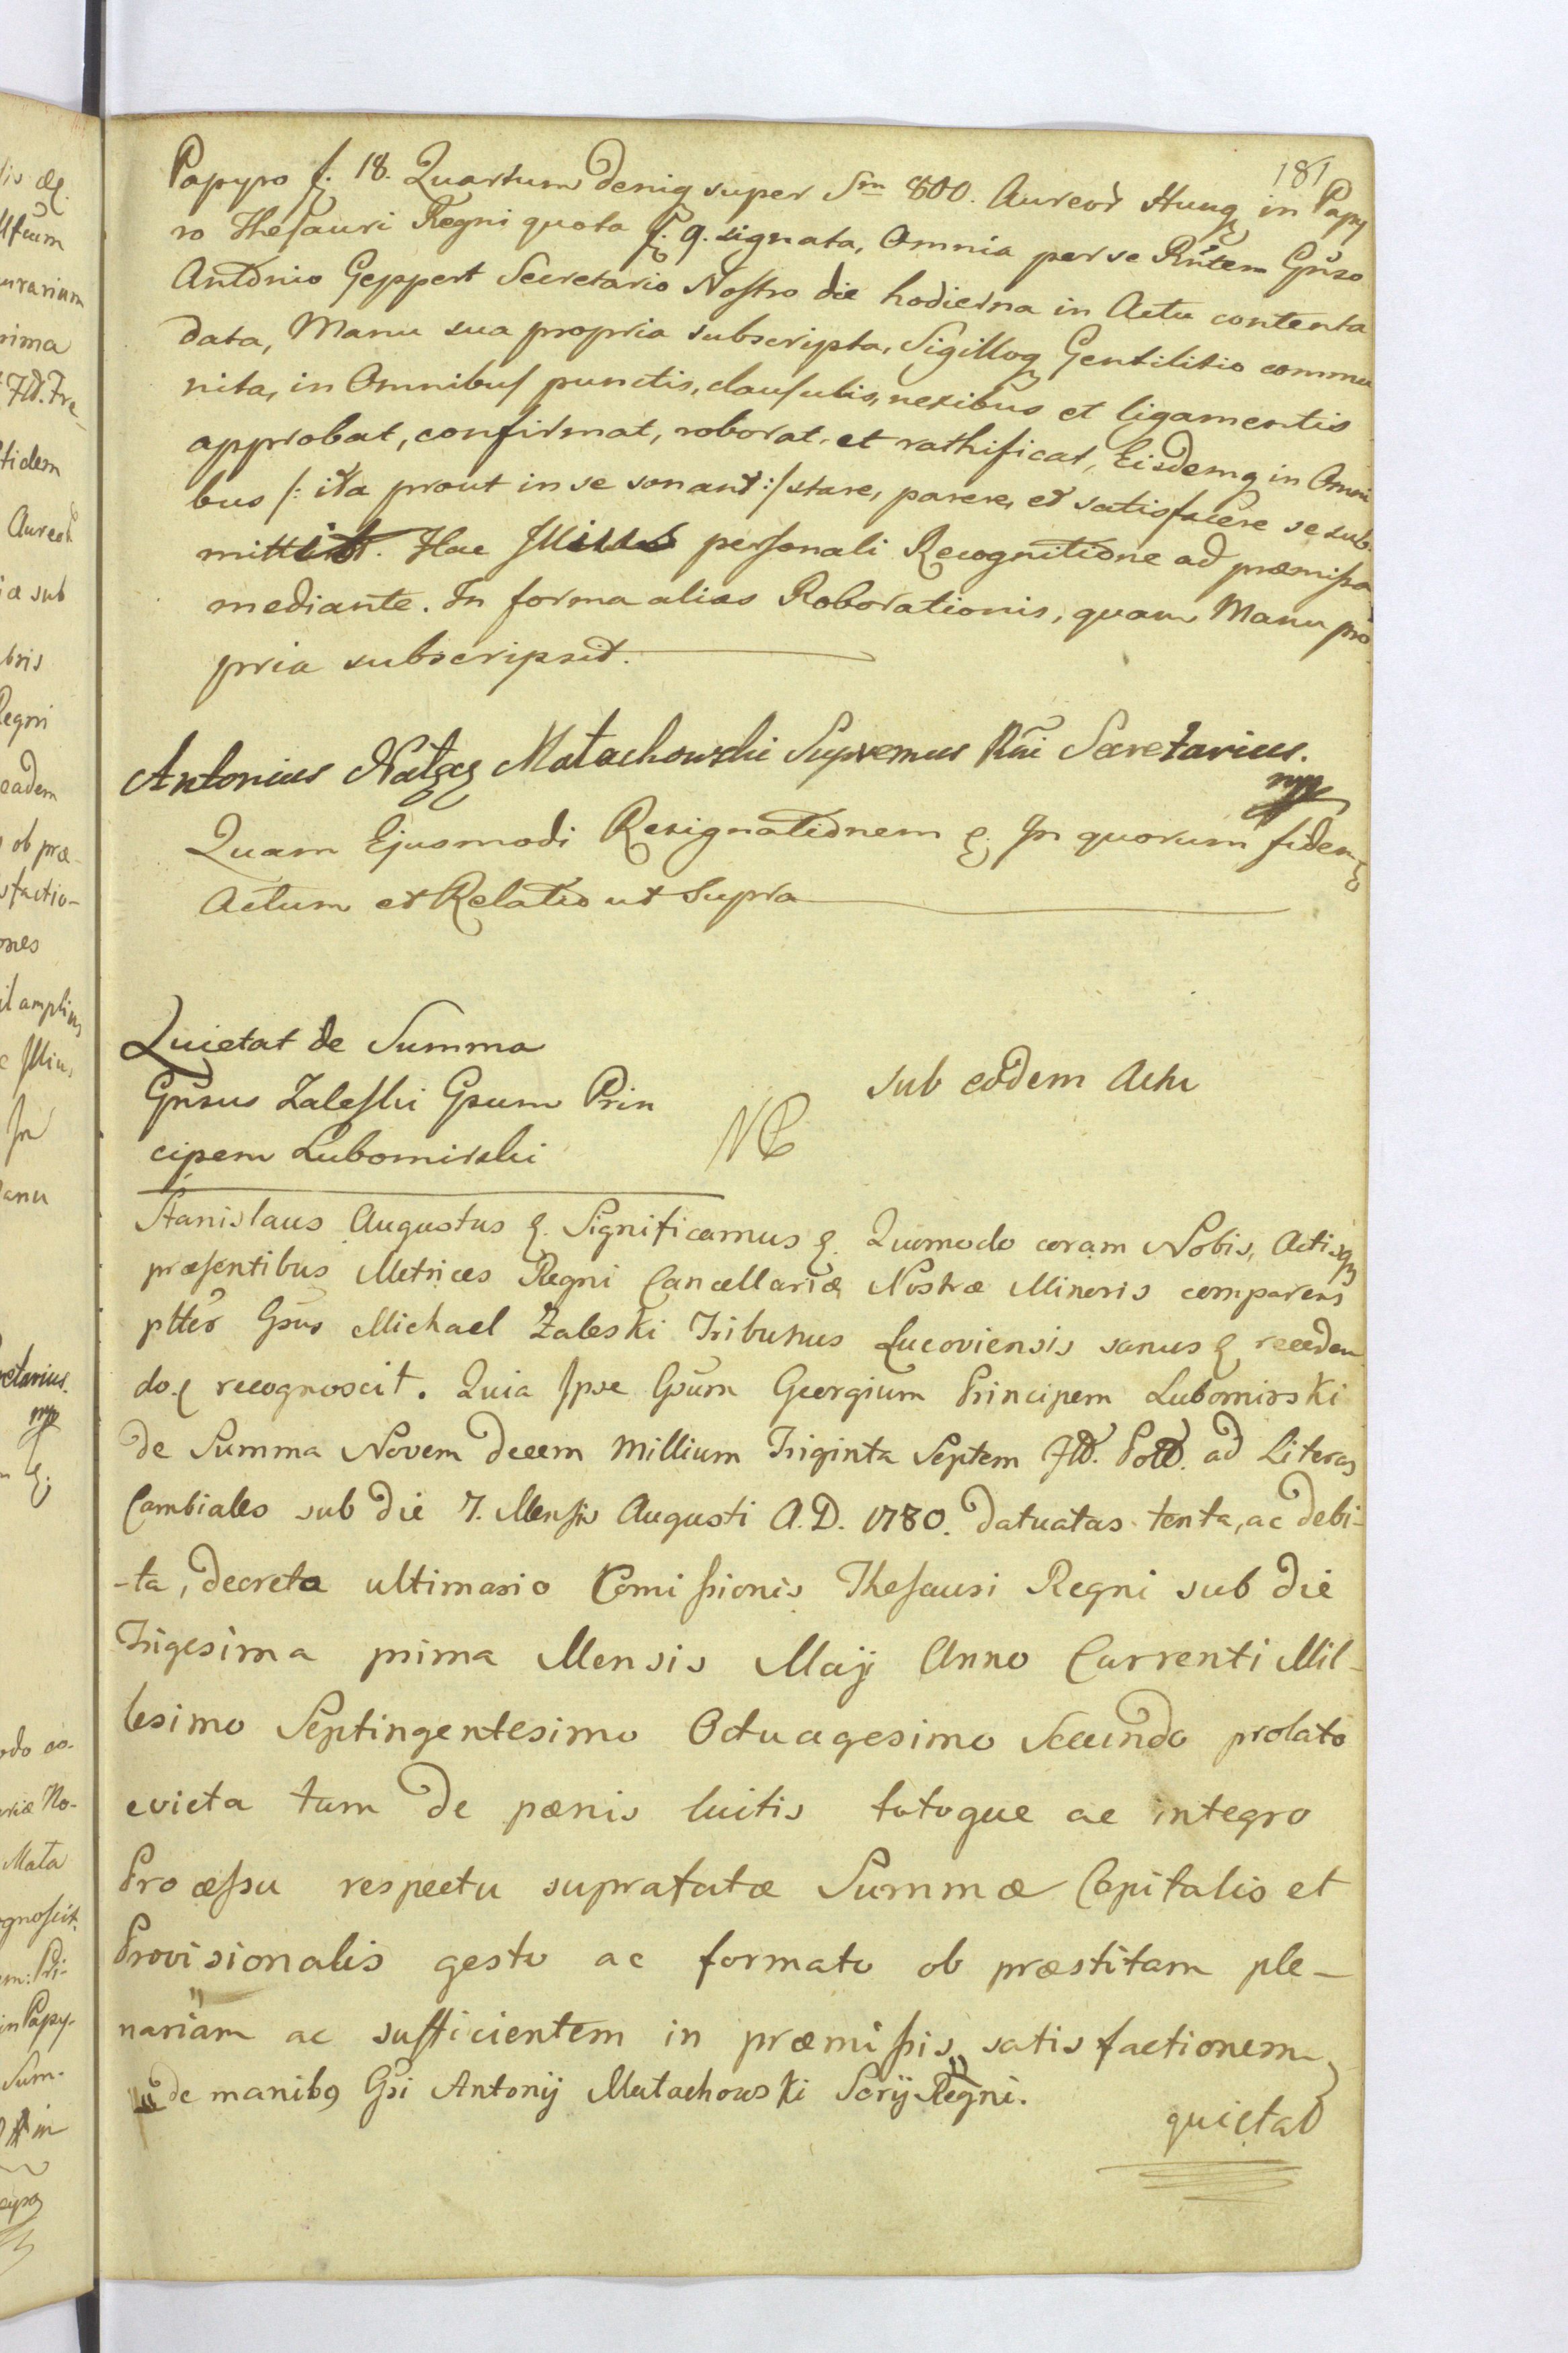 181
Papyro f. 18. Quartum deniq super Sm̅ 800. Aureor Hung in Papy
ro Thesauri Regni quota f. 9. signata, Omnia per se Rn̅tem Gn̅so
Antonio Geppert Secretario Nostro die hodierna in Actu contenta
data, Manu sua propria subscripta, Sigilloq Gentilitio commu
nita, in Omnibus punctis, clausulis, nexibus et ligamentis
approbat, confirmat, roborat et rathificat, Eisdemq in Omni
bus /: ita prout in se sonant :/ stare, parere, et satisfacere se sub
mittit. Hac Illius personali Recognitione ad præmissa
mediante. In forma alias Roborationis, quam Manu pro
pria subscripsit.
Antonius Małachowski Supremus Rn̅i Secretarius.
mp
Quam Ejusmodi Resignationem &. In quorum fidem &
Actum et Relatio ut Supra
Quietat de Summa
Gn̅sus Zaleski Gsum Prin
cipem Lubomirski
NB
sub eodem Actu
Stanislaus Augustus &. Significamus &. Quomodo coram Nobis, Actisq
præsentibus Metrices Regni Cancellariæ Nostræ Minoris comparens
pltēr Gsus Michael Zaleski Tribunus Lucoviensis sanus & receden
do & recognoscit. Quia Ipse Gsum Georgium Principem Lubomirski
de Summa Novem decem Millium Triginta Septem Fld. Pold. ad Literas
Cambiales sub die 7. Mensis Augusti A.D. 1780. datuatas tenta, ac debi-
-ta, decreto ultimario Comissionis Thesauri Regni sub die
Trigesima prima Mensis Maij Anno Currenti Mil-
lesimo Septingentesimo Octuagesimo Secundo prolato
evicta tum de pænis luitis totoque ac integro
Processu respectu supratatæ Summæ Capitalis et
Provisionalis gesto ac formato ob præstitam ple-
nariam ac sufficientem in præmissis satisfactionem
de manibg Gsi Antonij Małachowski Scrij Regni.
quietat